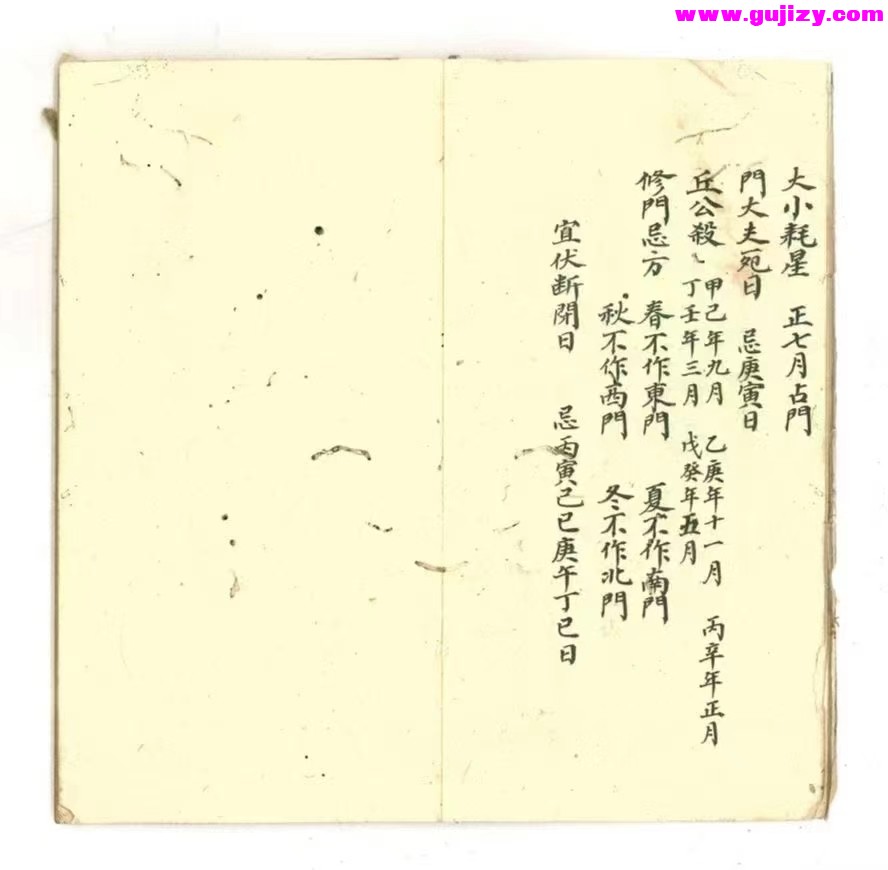 www.gujizy.com
大小耗星　正七月占門
門大夫死日　忌庚寅日
丘公殺　甲己年九月　乙庚年十一月　丙辛年正月
丁壬年三月　戊癸年五月
修門忌方　春不作東門　夏不作南門
秋不作西門　冬不作北門
宜伏断閉日　忌丙寅己巳庚午丁巳日